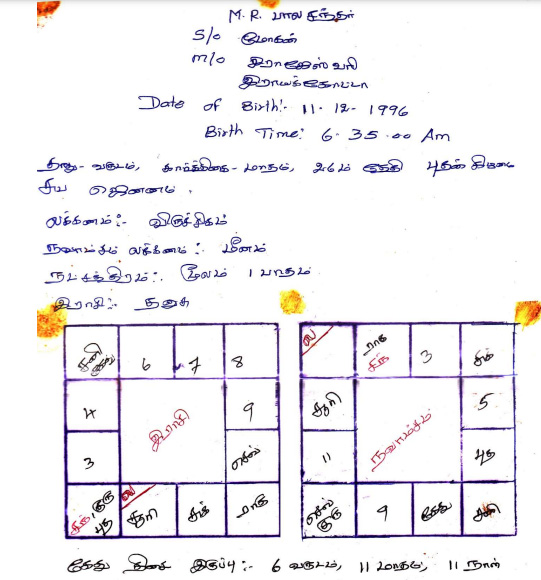 M. R. பாலசந்தர்
S/o மோகன்
m/o இராஜேஸ்வரி
இராயக்கோட்டா
Date of Birth:- 11-12-1996
Birth Time: 6-35-00 Am
தாது-வருடம், கார்த்திகை-மாதம், 26ம் தேதி புதன்கிழமை
ஜெனனம்.
லக்கனம்:- விருச்சிகம்
நவாம்சம் லக்கனம்:- மீனம்
நட்சத்திரம்:- மூலம் 1 பாதம்
இராசி:- தனுசு
சனி கேது 6 7 8
4 இராசி 9
3 செவ்
சந், குரு புத ல சூரி சுக் ராகு
ல ராகு சந் 3 சுக்
சூரி நவாம்சம் 5
11 புத
செவ் குரு 9 கேது சனி
கேது திசை இருப்பு:- 6 வருடம், 11 மாதம், 11 நாள்